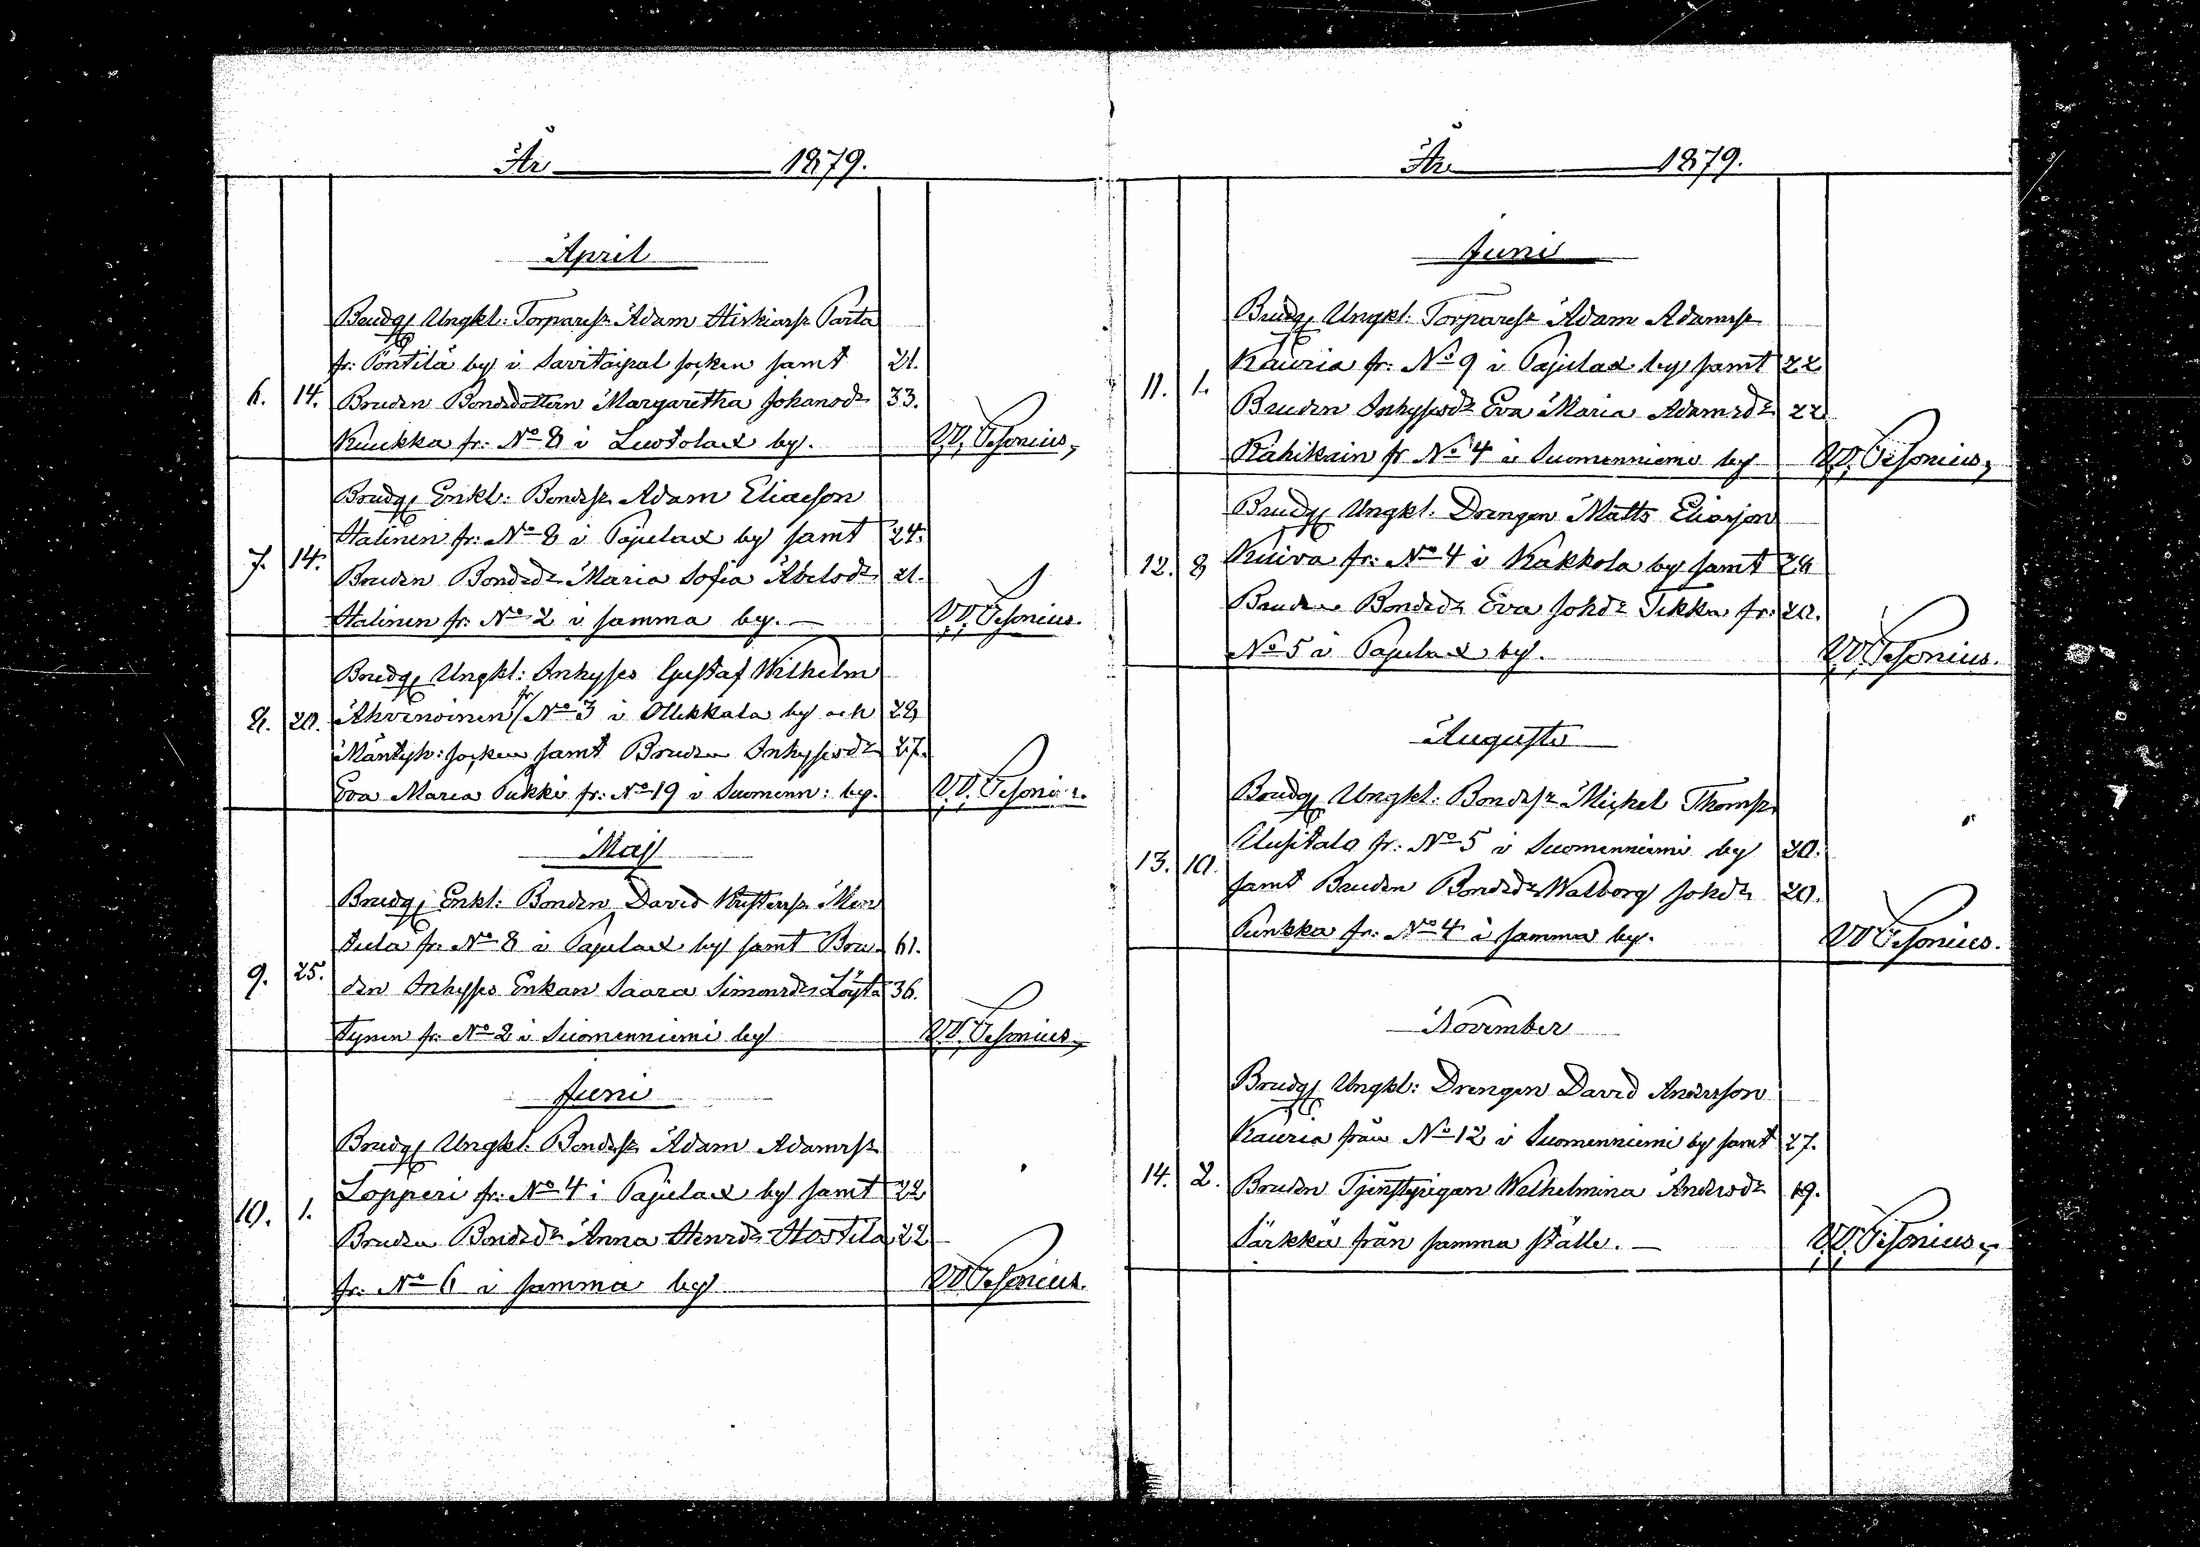 År 1879.
April
Brudg. Ungkl: Torparesn Adam Hiskiarsn Parta
fr: Pöntilä by i Savitaipal socken samt 21.
6. 14. Bruden Bondedottern Margaretha Johansdr 33.
Kuukka fr: No 8 i Luotolax by. W. Pesonius,
Brudg. Enkl: Bondesn Adam Eliaeson
Halinen fr: No 8 i Pajulax by samt 24.
7. 14. Bruden Bondedr Maria Sofia Abelsdr 21.
Halinen fr: No 2 i samma by. — W. Pesonius.
Brudg. Ungkl: Inhyses Gustaf Wilhelm
8. 20. Ahvenoinen fr/ No 3 i Ollikkala by och 28
Mäntyh: socken samt Bruden Inhysesdr 27.
Eva Maria Pukki fr: No 19 i Suomenn: by. W. Pesonius.
Maj
Brudg. Enkl: Bonden David Kristersn Men
tula fr: No 8 i Pajulax by samt Bru- 61.
9. 25. den Inhyses Enkan Saara Simonsdr Löyt- 36.
tynen fr: No 2 i Suomenniemi by W. Pesonius,
Juni
Brudg. Ungkl: Bondesn Adam Adamsn
Lopperi fr: No 4 i Pajulax by samt 22
10. 1. Bruden Bondedr Anna Henrdr Hostila 22
fr: No 6 i samma by W Pesonius.
År 1879.
Juni
Brudg. Ungkl. Torparesn Adam Adamsn
Kauria fr: No 9 i Pajulax by samt 22
11. 1. Bruden Inhysesdr Eva Maria Adamsdr 22
Kähikäin fr No 4 i Suomenniemi by W. Pesonius,
Brudg. Ungkl. Drengen Matts Eliasson
12. 8 Kuiva fr: No 4 i Kakkola by samt 28
Bruden Bondedr Eva Johdr Tikka fr: 20.
No 5 i Pajulax by. W Pesonius.
Augusti
Brudg. Ungkl: Bondesn Michel Thomsn
Uusitalo fr: No 5 i Suomenniemi by 20.
13. 10. samt Bruden Bondedr Walborg Johdr 20.
Punkka fr: No 4 i samma by. W Pesonius.
November
Brudg. Ungkl: Drengen David Andersson
Kauria från No 12 i Suomenniemi by samt 27.
14. 2. Bruden Tjenstepigan Wilhelmina Andersdr 19.
Särkkä från samma ställe. — W. Pesonius,